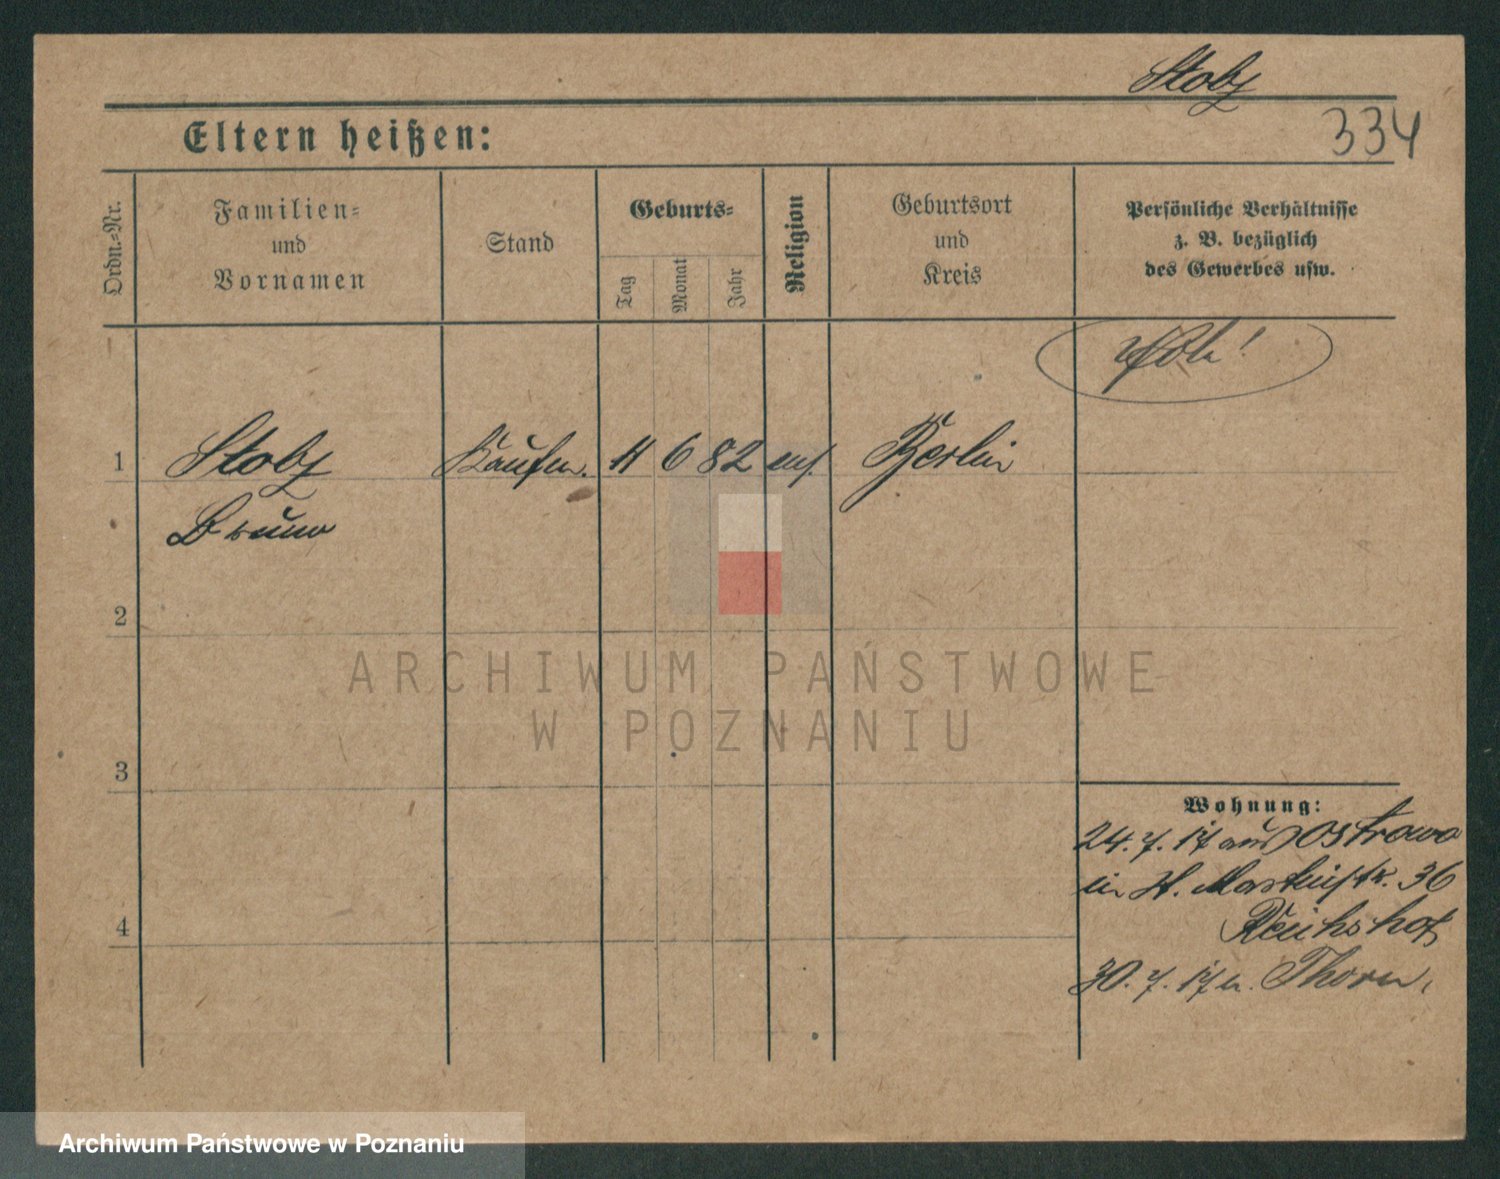 Stobj
334
Eltern heißen:
Ordn.-Nr.
Familien-
und
Vornamen
Stand
Geburts-
Tag
Monat
Jahr
Religion
Geburtsort
und
Kreis
Persönliche Verhältnisse
z. B. bezüglich
des Gewerbes usw.
1
Stobj
Kaufm.
11
6
82
Berlin
Bruno
2
3
4
ARCHIWUM PAŃSTWOWE
W POZNANIU
Wohnung:
24.7.17 aus Ostrowo
in St. Martinstr. 36
Reichshof
30.7.17 n. Thorn,
Archiwum Państwowe w Poznaniu